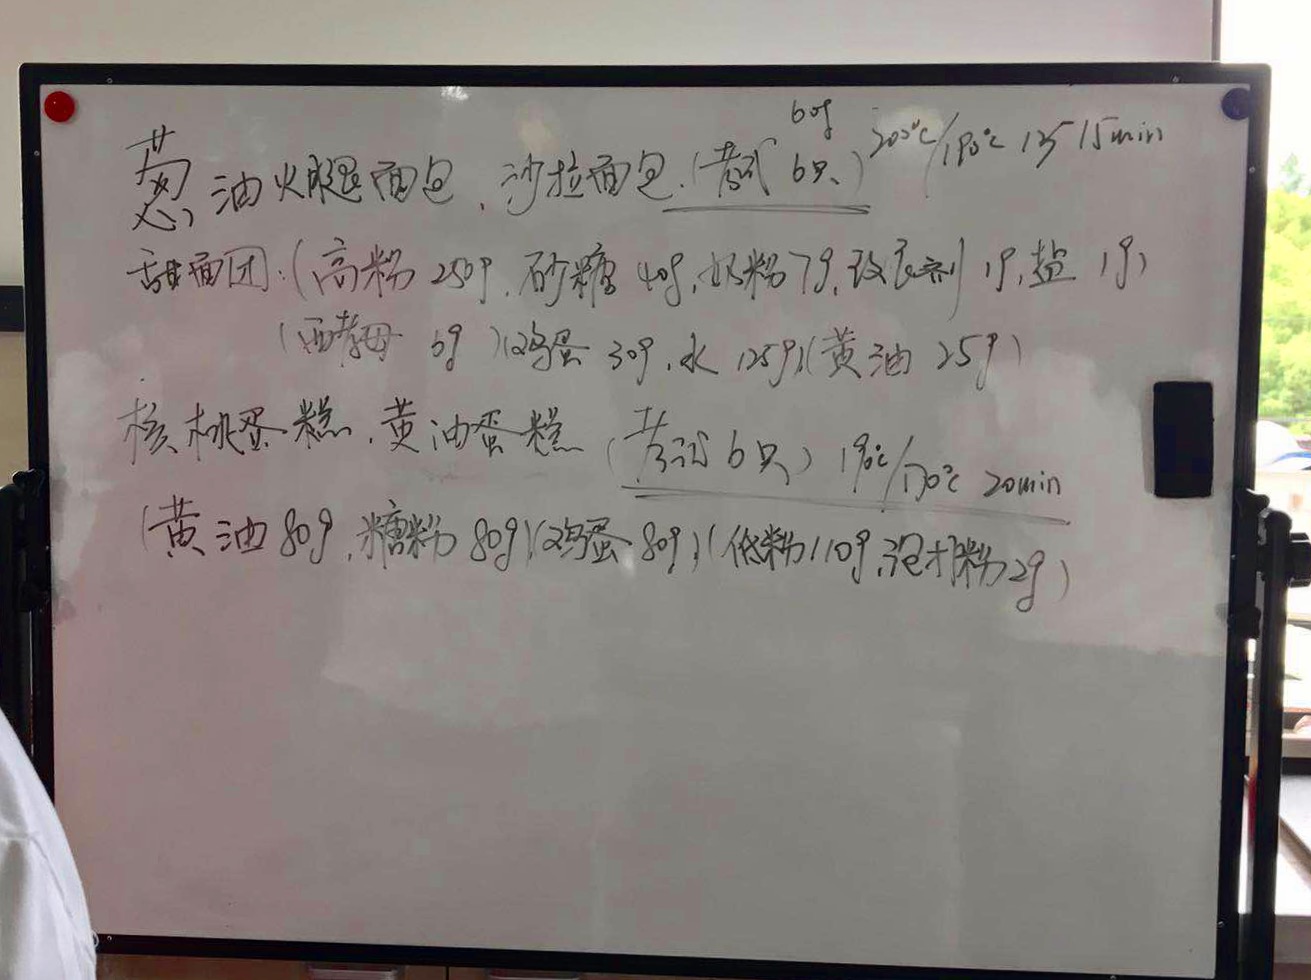 葱油火腿面包、沙拉面包.(考试 60g 6只) 200℃/190℃ 15min
甜面团:(高粉 250g、砂糖 40g、奶粉 7g、改良剂 1g、盐 1g)
(酵母 6g)(鸡蛋 30g、水 125g)(黄油 25g)
核桃蛋糕、黄油蛋糕(考试 6只) 190℃/170℃ 20min
(黄油 80g、糖粉 80g)(鸡蛋 80g)(低粉 110g、泡打粉 2g)